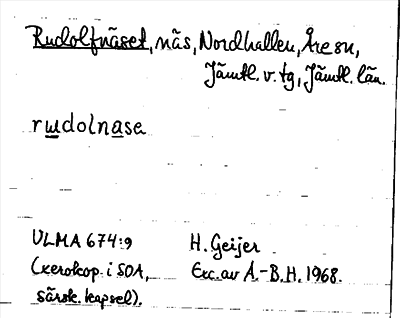 Rudolfnäset, näs, Nordhallen, Åre sn,
Jämtl. v. tg, Jämtl. län.
rudolnasa
ULMA 674:9 H. Geijer
(xerokop. i SOA, Exc. av A.-B.H. 1968.
särsk. kapsel).